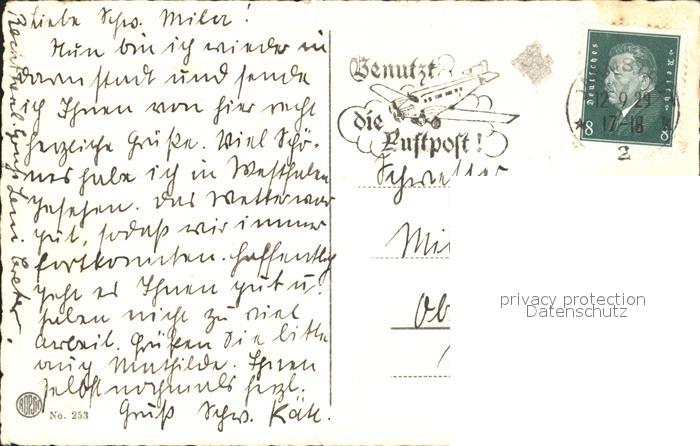 Liebe Schw. Mila!
Nun bin ich wieder in
Darmstadt und sende
ich Ihnen von hier recht
herzliche Grüße. Viel Schö-
nes habe ich in Westfalen
gesehen. Das Wetter war
gut, sodaß wir immer
fortkonnten. Hoffentlich
geht es Ihnen gut u.
haben nicht zu viel
Arbeit. Grüßen Sie bitte
auch Mathilde. Ihnen
selbst nochmals herzl.
Gruß Schw. Käte.
Benutzt
die
Luftpost!
Deutsches Reich
8 8
12.9.29
17-18
2
Schwester
Mi
Ob
privacy protection
Datenschutz
No. 253